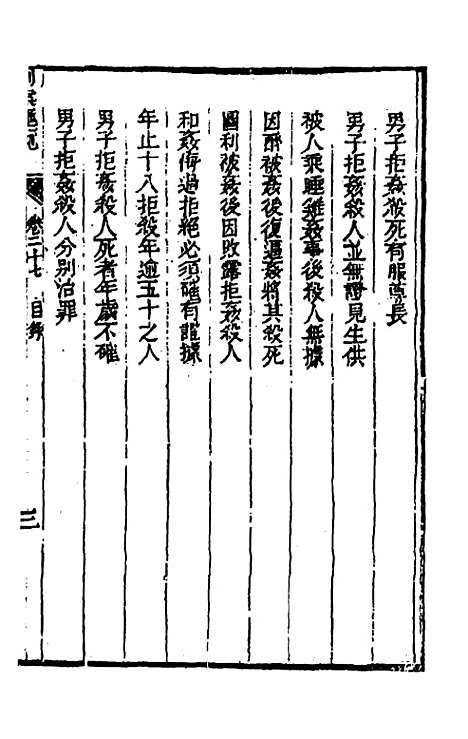 男子拒姦殺死有服尊長
男子拒姦殺人並無證見生供
被人乘睡雞姦事後殺人無據
因醉被姦後復逼姦將其殺死
圖利被姦後因敗露拒姦殺人
和姦悔過拒絕必須確有證據
年止十八拒殺年逾五十之人
男子拒姦殺人死者年歲不確
男子拒姦殺人分別治罪
卷二十七 目錄
三